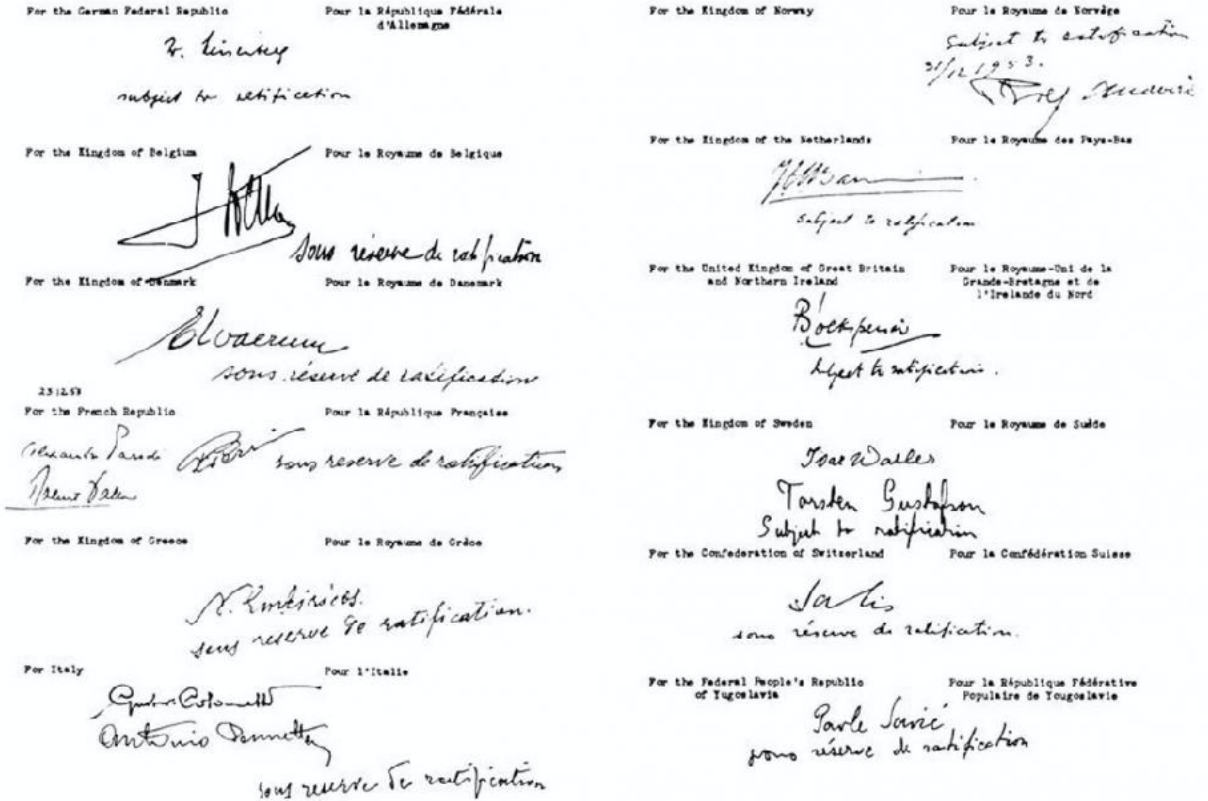 For the German Federal Republic
Pour la République Fédérale
d'Allemagne
subject to ratification
For the Kingdom of Belgium
Pour le Royaume de Belgique
sous réserve de ratification
For the Kingdom of Denmark
Pour le Royaume de Danemark
sous réserve de ratification
231253
For the French Republic
Pour la République Française
Alexandre Parodi
sous reserve de ratification
For the Kingdom of Greece
Pour le Royaume de Grèce
sous reserve de ratification.
For Italy
Pour l'Italie
Gustavo Colonnetti
Antonio Pennetta
sous reserve de ratification
For the Kingdom of Norway
Pour le Royaume de Norvège
Subject to ratification
31/12 1953.
For the Kingdom of the Netherlands
Pour le Royaume des Pays-Bas
subject to ratification
For the United Kingdom of Great Britain
and Northern Ireland
Pour le Royaume-Uni de la
Grande-Bretagne et de
l'Irelande du Nord
subject to ratification.
For the Kingdom of Sweden
Pour le Royaume de Suède
Ivar Waller
Torsten Gustafson
Subject to ratification
For the Confederation of Switzerland
Pour la Confédération Suisse
Salis
sous réserve de ratification.
For the Federal People's Republic
of Yugoslavia
Pour la République Fédérative
Populaire de Yougoslavie
Pavle Savić
sous réserve de ratification